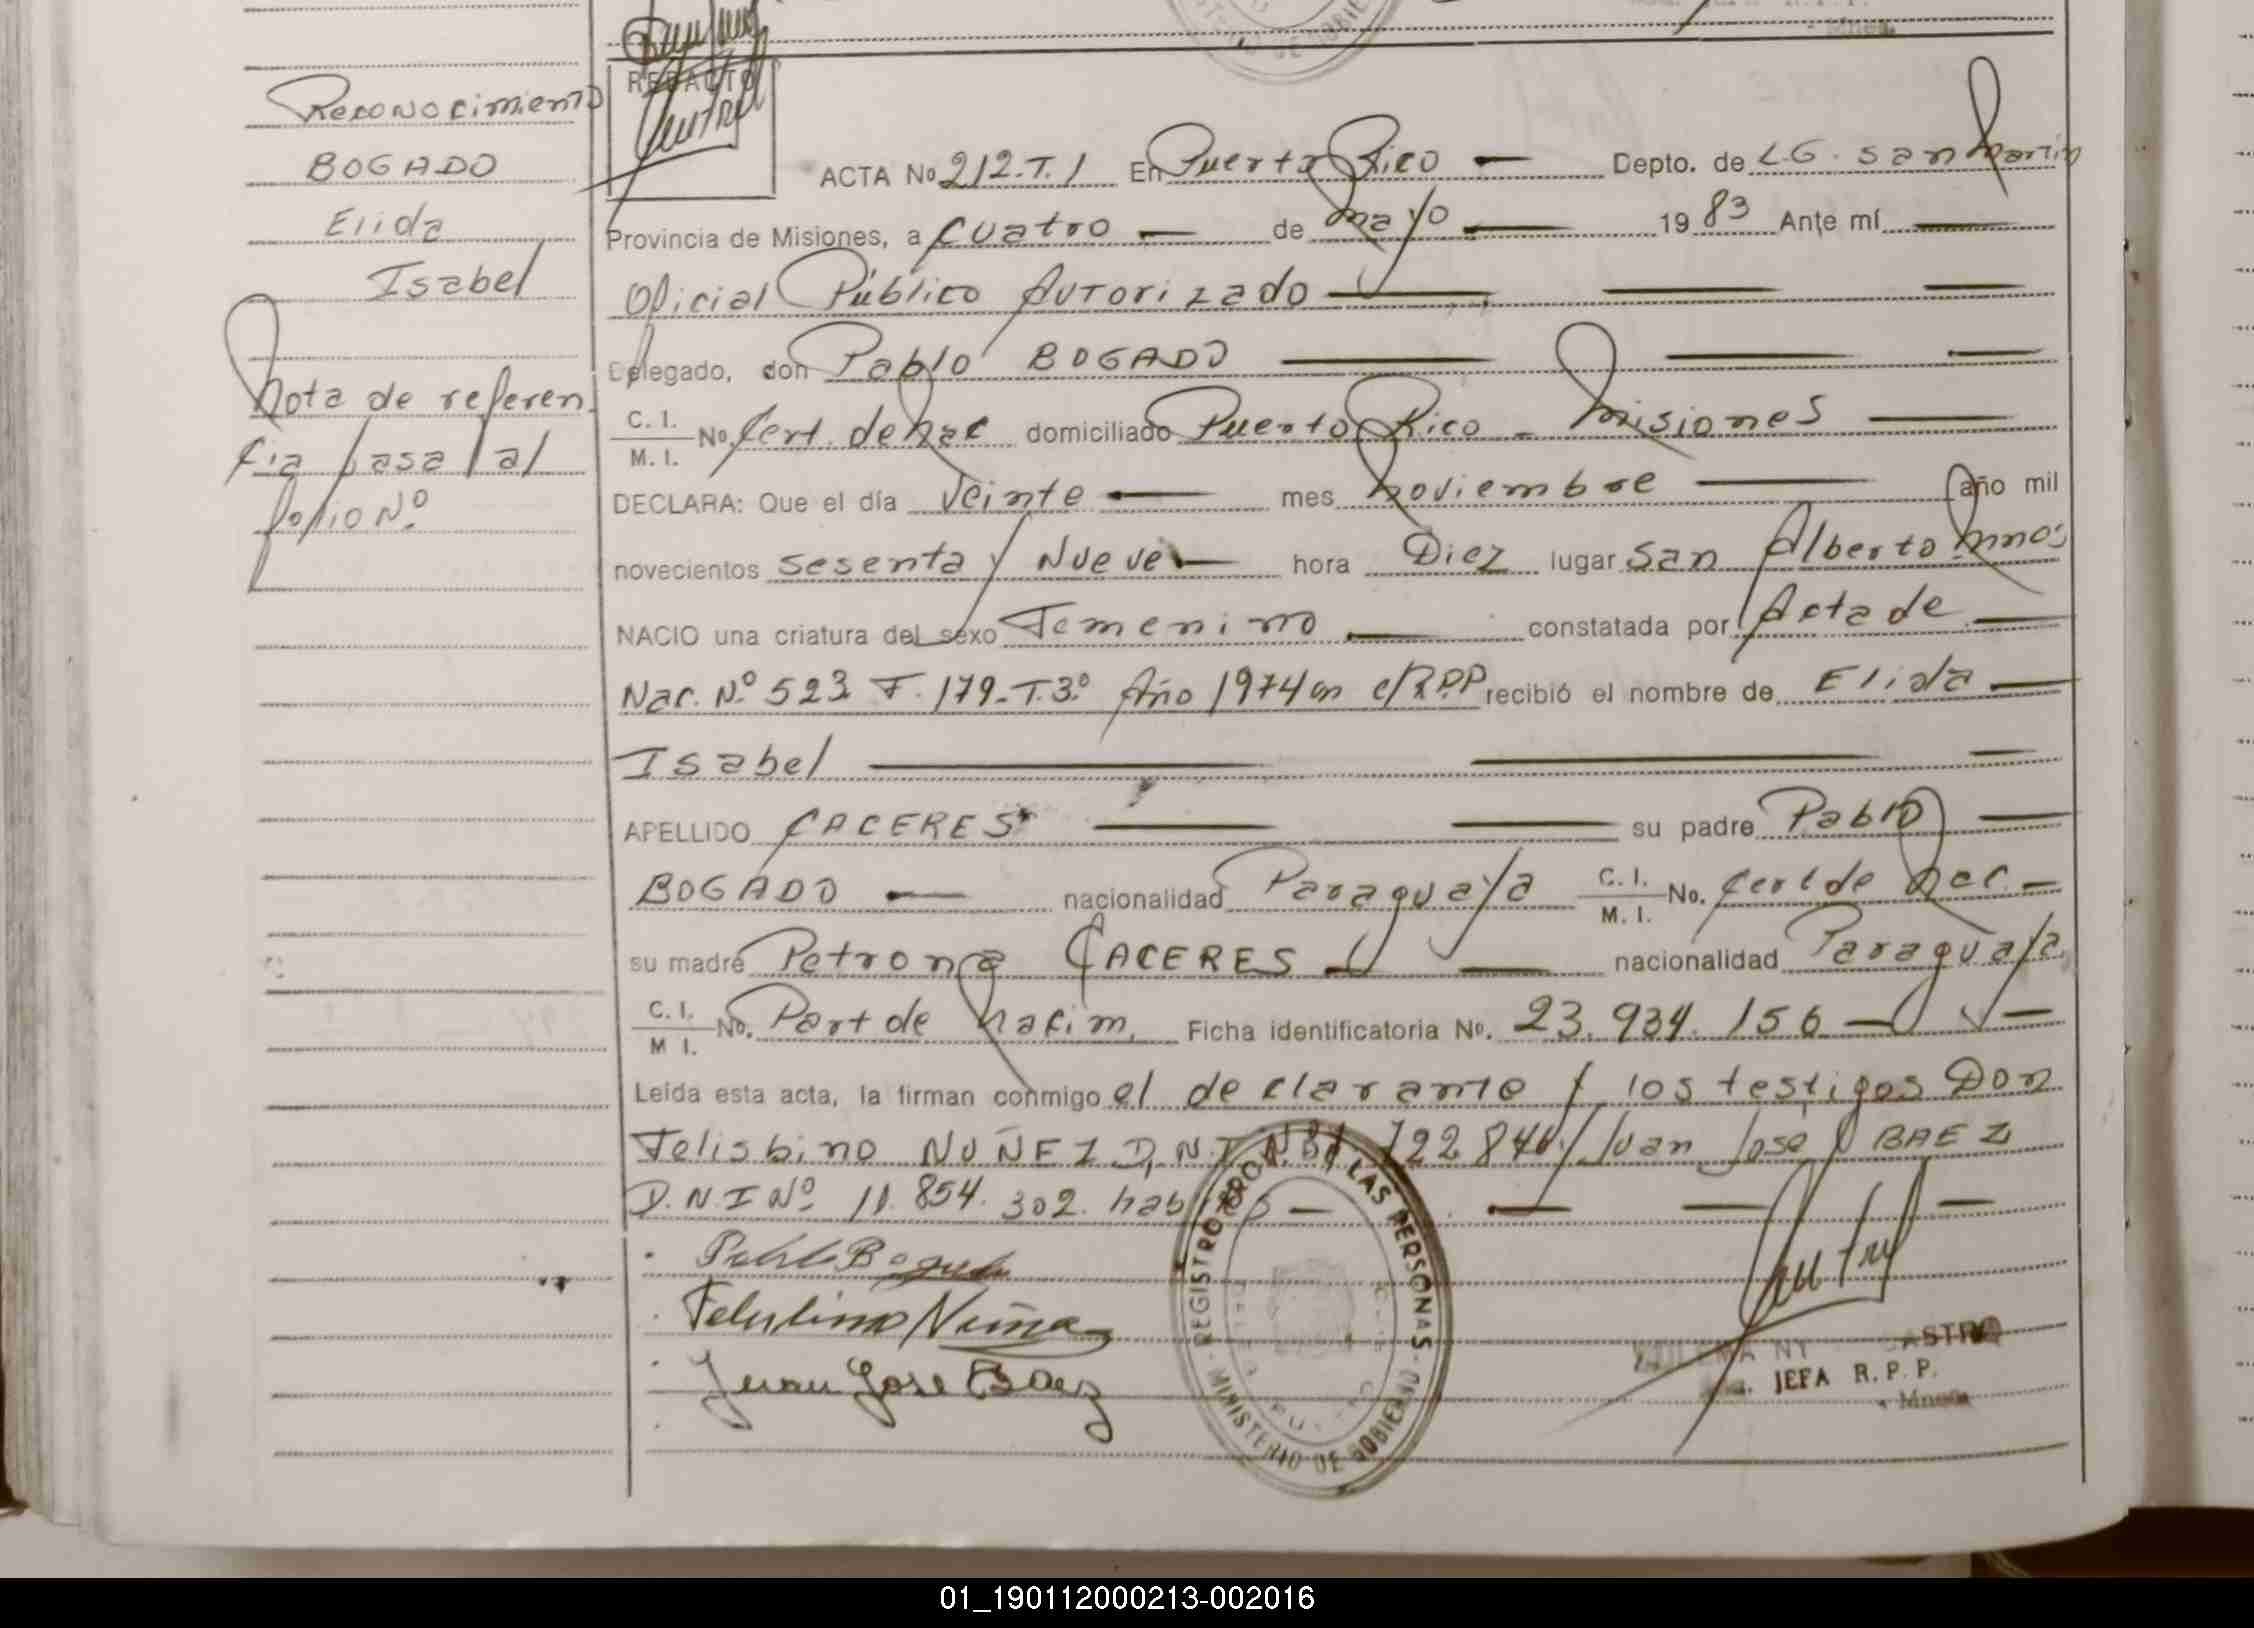 REDACTO
Reconocimiento
BOGADO
Elida
Isabel
Nota de referen
cia pasa al
folio Nº
ACTA No 212.T.1 En Puerto Rico Depto. de L.G. San Martin
Provincia de Misiones, a cuatro de mayo 19 83 Ante mí
Oficial Público Autorizado
Delegado, don Pablo BOGADO
C. I. / M. I. No. Cert. de Nac domiciliado Puerto Rico - Misiones
DECLARA: Que el día Veinte mes Noviembre año mil
novecientos sesenta y Nueve hora Diez lugar San Alberto Mnes
NACIO una criatura del sexo Femenino constatada por Acta de
Nac. Nº 523 F. 179-T.3º Año 1974 en e/R.P.P recibió el nombre de Elida
Isabel
APELLIDO CACERES su padre Pablo
BOGADO nacionalidad Paraguaya C. I. / M. I. No. Cert de Nac.
su madre Petrona CACERES nacionalidad Paraguaya
C. I. / M I. No. Part de Nacim. Ficha identificatoria No. 23.934.156
Leída esta acta, la firman conmigo el declarante y los testigos Don
Felisbino NUÑEZ D.N.I. 722 840 y Juan Jose BAEZ
D.N.I Nº 11.854.302. hab
Pablo Bogado
Felisbino Nuñez
Juan Jose Baez
REGISTRO PROV. LAS PERSONAS
MINISTERIO DE GOBIERNO
JEFA R. P. P.
Mnes.
01_190112000213-002016